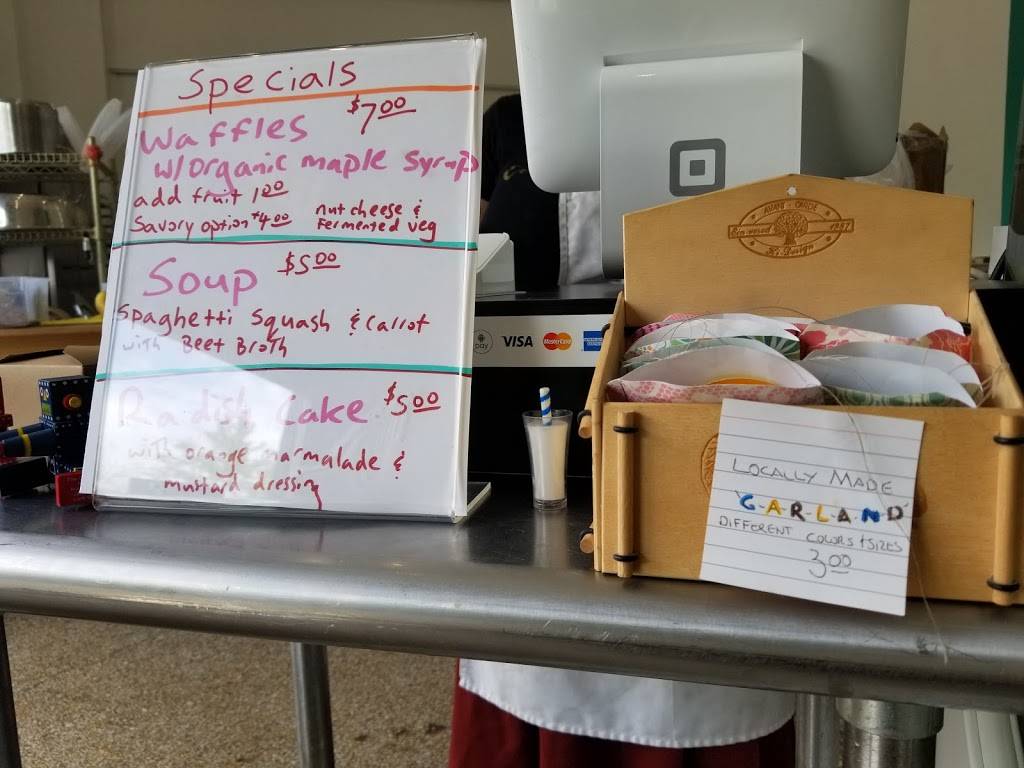 Specials
$7.00
Waffles
w/organic maple Syrup
add fruit 1.00
Savory option +4.00 nut cheese & Fermented veg
Soup $5.00
Spaghetti Squash & Carrot
with Beet Broth
Radish Cake $5.00
with orange marmalade &
mustard dressing
Pay VISA MasterCard
LOCALLY MADE
"G-A-R-L-A-N-D"
DIFFERENT COLORS + SIZES
3.00